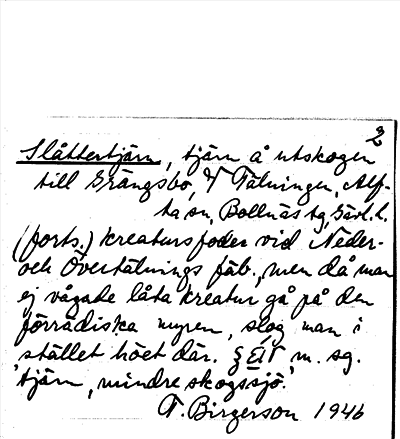 2
Slåttertjärn, tjärn å utskogen
till Grängsbo, V Tälningen, Alf-
ta sn, Bollnäs tg, Gävl. l.
(forts.) kreatursfoder vid Neder-
och Övertälnings fäb., men då man
ej vågade låta kreatur gå på den
förrädiska myren, slog man i
stället höet där.
tjärn, mindre skogssjö.
T. Birgerson 1946